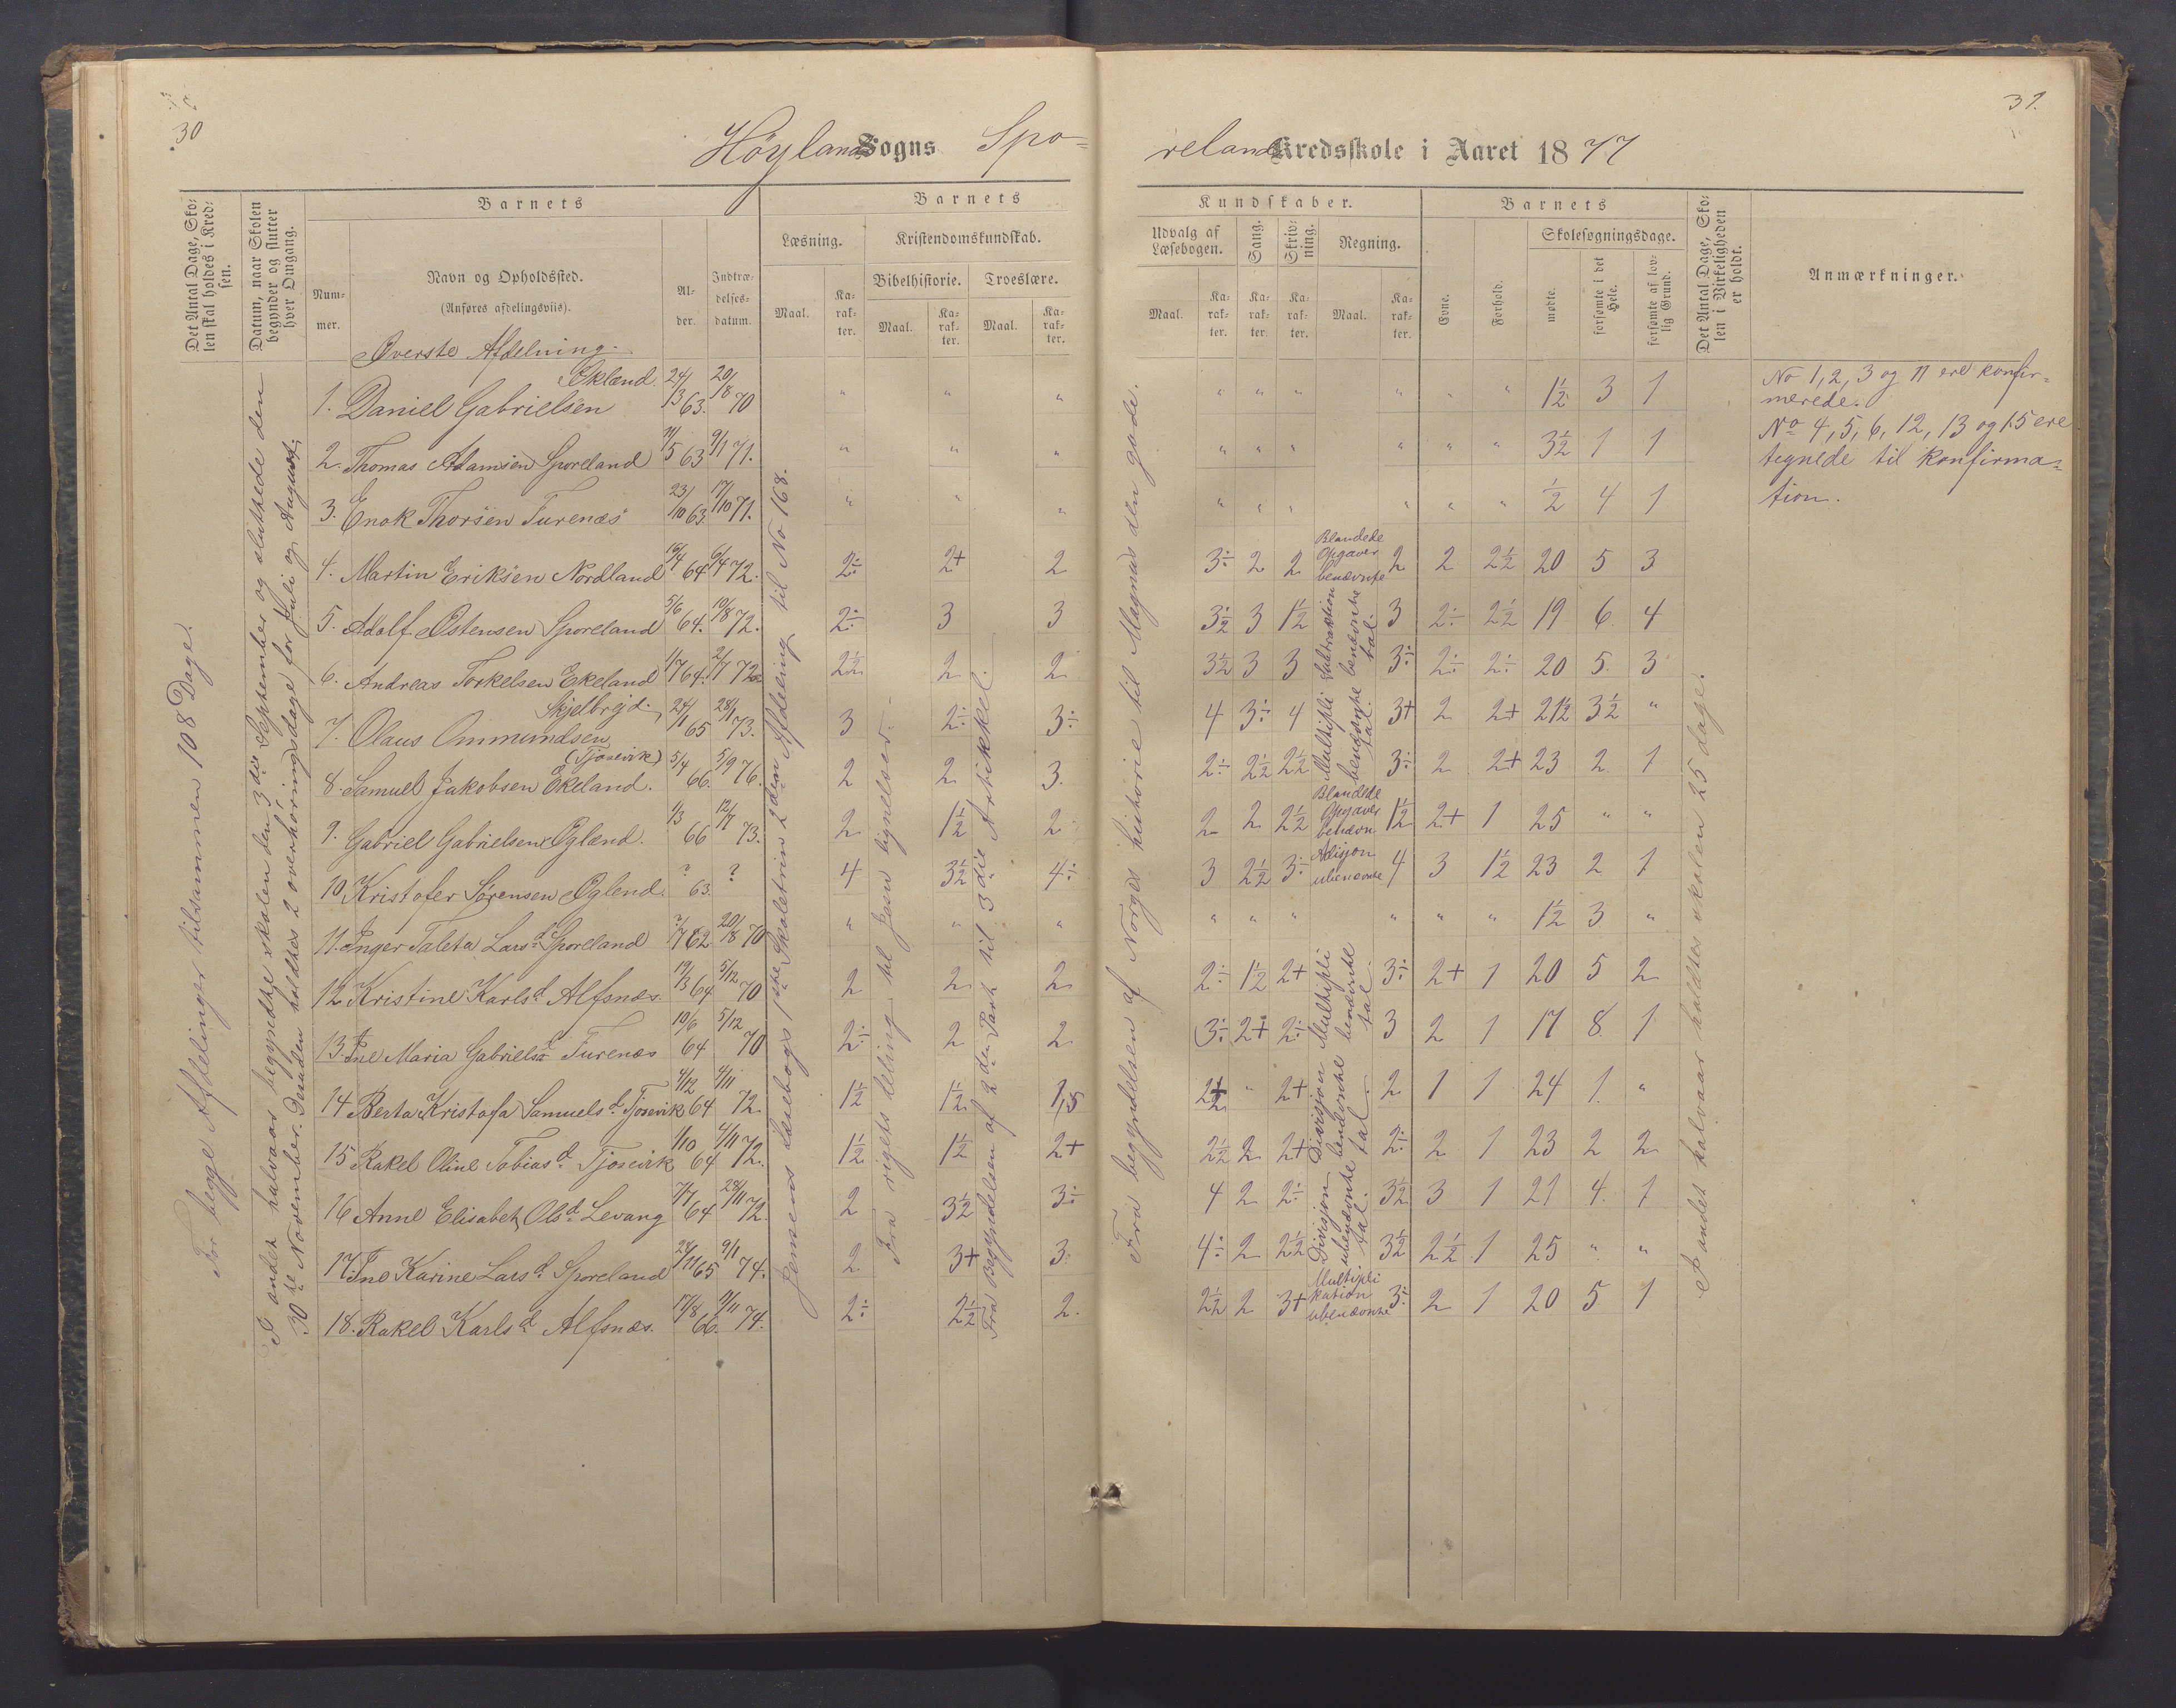 30
31.
Höylands Sogns Spo=
relands Kredsskole i Aaret 1877
Det Antal Dage, Sko=
len skal holdes i Kred=
sen.
Datum, naar Skolen
begynder og slutter
hver Omgang.
Barnets
Num=
mer.
Navn og Opholdssted.
(Anføres afdelingsviis).
Al=
der.
Indtræ=
delses=
datum.
Barnets
Læsning.
Maal.
Ka=
rak=
ter.
Kristendomskundskab.
Bibelhistorie.
Maal.
Ka=
rak=
ter.
Troeslære.
Maal.
Ka=
rak=
ter.
Kundskaber.
Udvalg af
Læsebogen.
Maal.
Ka=
rak=
ter.
Sang.
Ka=
rak=
ter.
Skriv=
ning.
Ka=
rak=
ter.
Regning.
Maal.
Ka=
rak=
ter.
Barnets
Evne.
Forhold.
Skolesøgningsdage.
mødte.
forsømte i det
Hele.
forsømte af lov=
lig Grund.
Det Antal Dage, Sko=
len i Virkeligheden
er holdt.
Anmærkninger.
For begge Afdelinger tilsammen 108 Dage.
I andet halvaar begyndte skolen den 3die September og sluttede den
30te November. Desuden holdtes 2 overhøringsdage for Juli og August.
Jensens Læsebogs 1ste Skoletrin 2den Afdeling til No 168.
Fra rigets deling til Jesu lignelser.
Fra Begyndelsen af 2den Part til 3die Artikkel.
Fra begyndelsen af Norges historie til Magnus den gode.
I andet halvaar holdtes skolen 25 dage.
Øverste Afdelning.
Ekland.
1. Daniel Gabrielsen 24/13 63. 20/18 70 " " " " " " " " " 1½ 3 1
2. Thomas Adamsen Sporeland 11/5 63 9/1 71. " " " " " " " " " 3½ 1 1
3. Enok Thorsen Turenæs 23/10 63. 17/10 71. " " " " " " " " ½ 4 1
4. Martin Eriksen Nordland 64 6/4 72. 2÷ 2+ 2 3÷ 2 2 Blandede Opgaver benævnte 2 2 2½ 20 5 3
5. Adolf Østensen Sporeland 5/6 64. 10/8 72. 2÷ 3 3 3½ 3 1½ Subtraktion benævnte tal. 3 2÷ 2½ 19 6. 4
6. Andreas Torkelsen Ekeland 64. 2/7 72 2½ 2 2 3½ 3 3 3÷ 2÷ 2÷ 20 5. 3
Skjelbrejd.
7. Olaus Ommundsen 24/1 65 28/1 73. 3 2÷ 3÷ 4 3÷ 4 Multipli benævnte tal. 3+ 2 2+ 21½ 3½ "
(Tjosevik)
8. Samuel Jakobsen Ekeland. 5/4 66. 5/9 76. 2 2 3. 2÷ 2½ 2½ 3÷ 2 2+ 23 2 1
9. Gabriel Gabrielsen Øglend. 4/3 66 12/7 73. 2 1½ 2 2 2 2½ Blandede Opgaver benævn 1½ 2+ 1 25 " "
10. Kristofer Sørensen Øglend. ? 63. ? 4 3½ 4÷ 3 2½ 3÷ Adisjon ubenævnte 4 3 1½ 23 2 1
11. Inger Taleta Larsd. Sporeland 7/7 62 20/8 70 " " " " " " " " " 1½ 3 "
12 Kristine Karlsd. Alfsnæs. 19/3 64 5/12 70 2 2 2 2÷ 1½ 2+ Multipli benævnte tal. 3÷ 2+ 1 20 5 2
13. Ine Maria Gabrielsd. Turenæs 10/6 64 5/12 70 2÷ 2 2 3÷ 2+ 2÷ 3 2 1 17 8. 1
14 Berta Kristofa Samuelsd. Tjosevik 4/12 64 4/11 72. 1½ 1½ 1,5 2½ " 2+ Divisjon benævnte tal. 2 1 1 24 1. "
15 Rakel Oline Tobiasd. Tjosevik 1/10 64 4/11 72. 1½ 1½ 2+ 2½ 2 2+ 2÷ 2 1 23 2 2
16 Anne Elisabet Olsd. Levang 7/7 64 28/11 72. 2 3½ 3÷ 4 2 2÷ Divisjon ubenævnte tal. 3½ 3 1 21 4. 1
17. Ine Karine Larsd. Sporeland 24/11 65 9/1 74. 2 3+ 3. 4÷ 2 2½ 3½ 2½ 1 25 " "
18. Rakel Karlsd. Alfsnæs. 17/8 66. 11/11 74. 2÷ 2½ 2. 2½ 2 3+ Multipli kation ubenævnte 3÷ 2 1 20 5 1
No 1, 2, 3 og 11 ere konfir=
merede.
No 4, 5, 6, 12, 13 og 15 ere
tegnede til Konfirma=
tion.